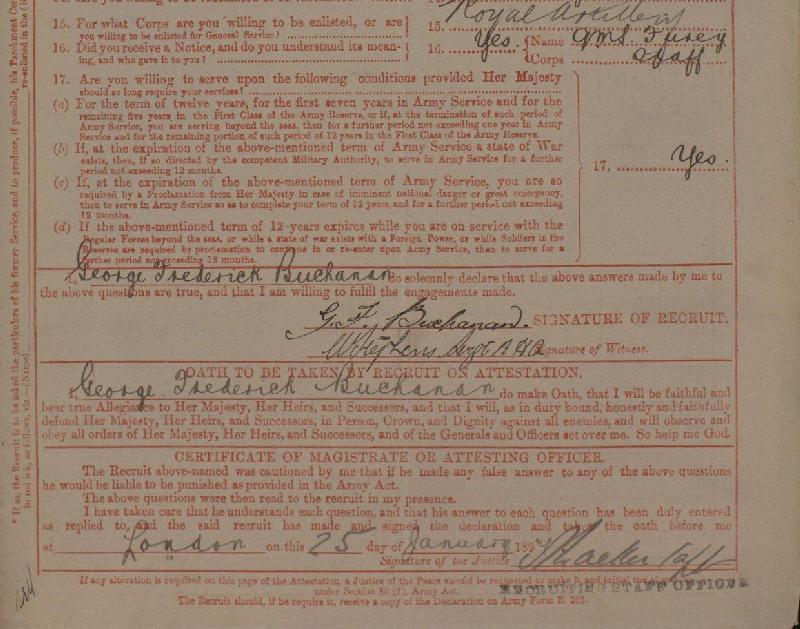 15. For what Corps are you willing to be enlisted, or are you willing to be enlisted for General Service?
15. Royal Artillery
16. Did you receive a Notice, and do you understand its meaning, and who gave it to you?
16. Yes. Name
Corps Staff
17. Are you willing to serve upon the following conditions provided Her Majesty
should so long require your services?
(a) For the term of twelve years, for the first seven years in Army Service and for the
remaining five years in the First Class of the Army Reserve, or if, at the termination of such period of
Army Service, you are serving beyond the seas, then for a further period not exceeding one year in Army
Service and for the remaining portion of such period of 12 years in the First Class of the Army Reserve.
(b) If, at the expiration of the above-mentioned term of Army Service a state of War
exists, then, if so directed by the competent Military Authority, to serve in Army Service for a further
period not exceeding 12 months.
(c) If, at the expiration of the above-mentioned term of Army Service, you are so
required by a Proclamation from Her Majesty in case of imminent national danger or great emergency,
then to serve in Army Service so as to complete your term of 12 years, and for a further period not exceeding
12 months.
(d) If the above-mentioned term of 12 years expires while you are on service with the
Regular Forces beyond the seas, or while a state of war exists with a Foreign Power, or while Soldiers in the
Reserve are required by proclamation to continue in or re-enter upon Army Service, then to serve for a
further period not exceeding 12 months.
17. Yes.
I, George Frederick Buchanan do solemnly declare that the above answers made by me to
the above questions are true, and that I am willing to fulfil the engagements made.
G. F. Buchanan. SIGNATURE OF RECRUIT.
Signature of Witness.
OATH TO BE TAKEN BY RECRUIT ON ATTESTATION.
I, George Frederick Buchanan do make Oath, that I will be faithful and
bear true Allegiance to Her Majesty, Her Heirs, and Successors, and that I will, as in duty bound, honestly and faithfully
defend Her Majesty, Her Heirs, and Successors, in Person, Crown, and Dignity against all enemies, and will observe and
obey all orders of Her Majesty, Her Heirs, and Successors, and of the Generals and Officers set over me. So help me God.
CERTIFICATE OF MAGISTRATE OR ATTESTING OFFICER.
The Recruit above-named was cautioned by me that if he made any false answer to any of the above questions
he would be liable to be punished as provided in the Army Act.
The above questions were then read to the recruit in my presence.
I have taken care that he understands each question, and that his answer to each question has been duly entered
as replied to, and the said recruit has made and signed the declaration and taken the oath before me
at London on this 25 day of January 189
Signature of the Justice
RECRUITING STAFF OFFICER
If any alteration is required on this page of the Attestation, a Justice of the Peace should be requested to make it and initial the
under Section 80 (6), Army Act.
The Recruit should, if he require it, receive a copy of the Declaration on Army Form B. 205.
* If so, the Recruit is to be asked the particulars of his former Service, and to produce, if possible, his Parchment
re-enlisted in the
in red ink, as follows, viz.—(Name)